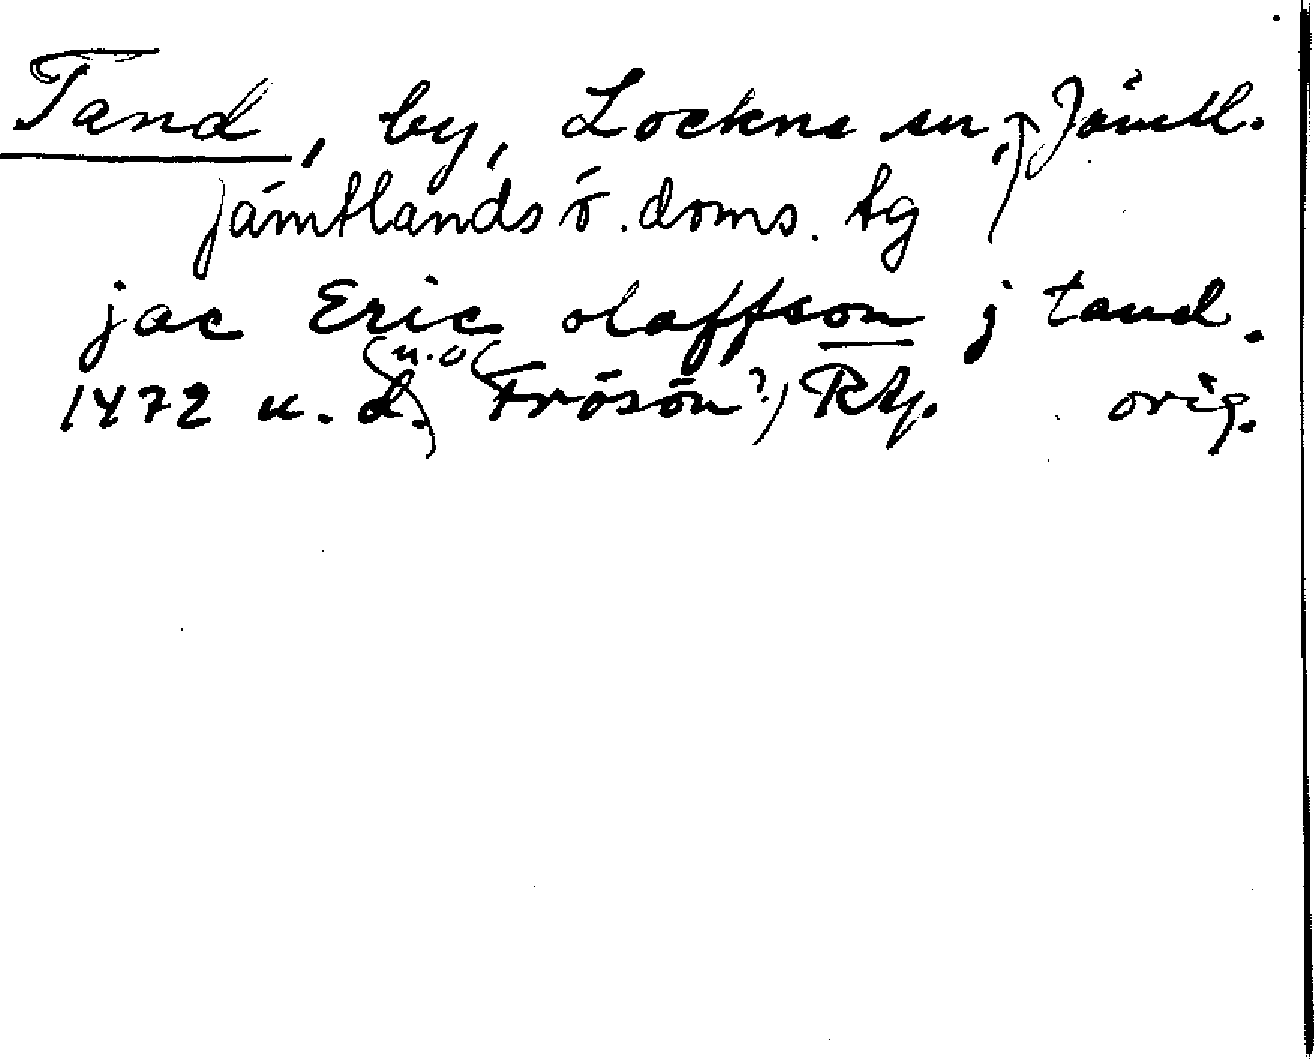 Tand, by, Lockne sn, Jämtl.
Jämtlands ö. doms. tg
jac Eric olaffson j tand.
(u.o)
1472 u. d. (Frösön?) RAp. orig.